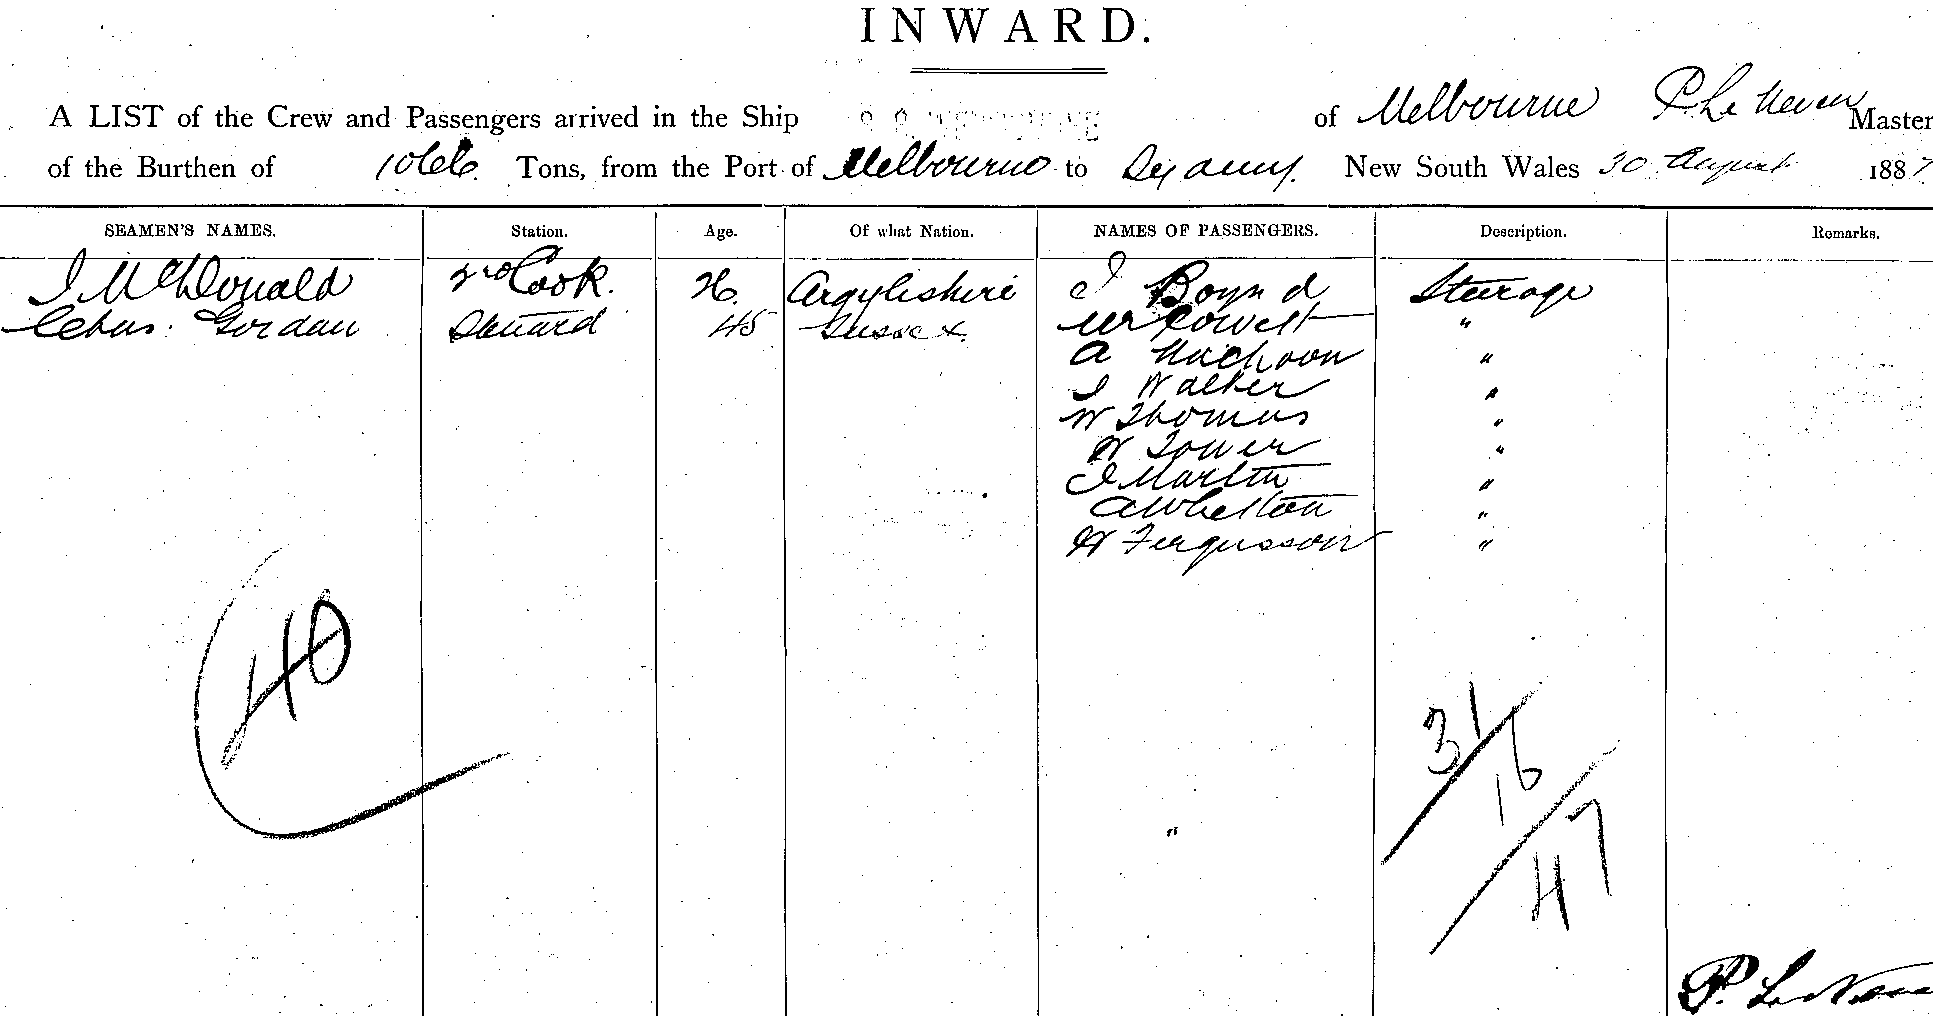 INWARD.
A LIST of the Crew and Passengers arrived in the Ship S.S. of Melbourne P Le Neven Master
of the Burthen of 1066 Tons, from the Port of Melbourne to Sydney. New South Wales 30 August 1887
SEAMEN'S NAMES. Station. Age. Of what Nation. NAMES OF PASSENGERS. Description. Remarks.
J McDonald 2nd Cook. 26. Argyleshire J Boyd Steerage
Chas. Gordan Steward 45 Sussex. "
A "
J Walker "
W Thomas "
W Tower "
J Martin "
A Whelton "
W Fergusson "
40
31
16
"
47
P. Le